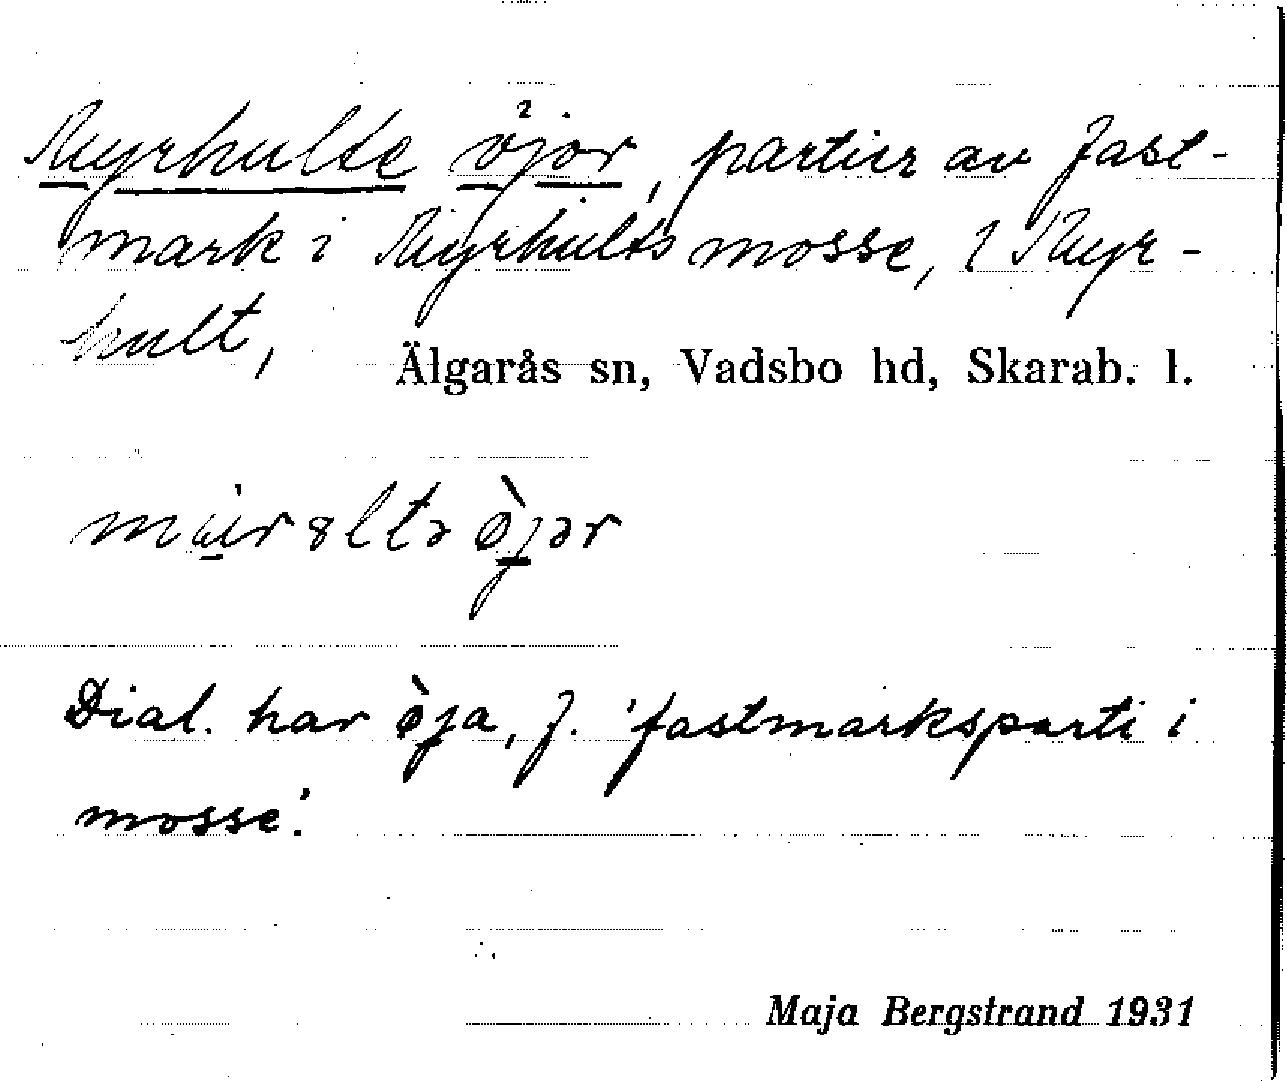 Myrhulte öjor, partier av fast-
mark i Myrhults mosse, 1 Myr-
hult,
Älgarås sn, Vadsbo hd, Skarab. l.
Dial. har òja, f. 'fastmarksparti i
mosse'.
Maja Bergstrand 1931